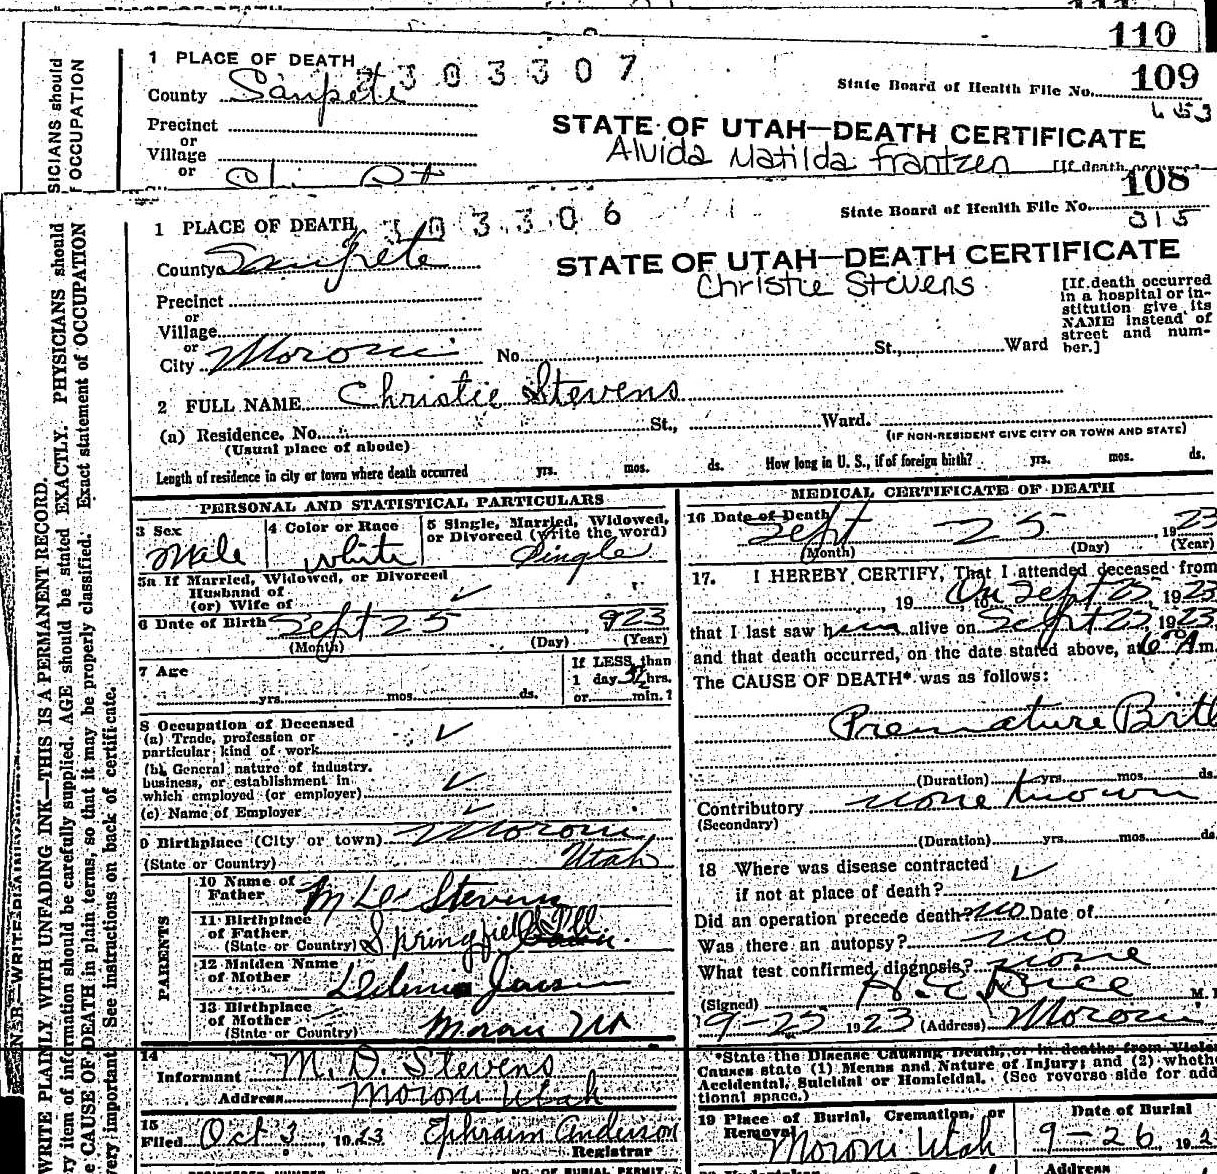 110
1 PLACE OF DEATH 303307
109
County Sanpete
State Board of Health File No.
653
Precinct
or
STATE OF UTAH—DEATH CERTIFICATE
Village
Alvida Matilda Frantzen
[If death occurred
or
108
1 PLACE OF DEATH 303306
State Board of Health File No.
315
County Sanpete
STATE OF UTAH—DEATH CERTIFICATE
Christie Stevens
Precinct
or
Village
or
City Moroni No. St., Ward
[If death occurred
in a hospital or in-
stitution give its
NAME instead of
street and num-
ber.]
2 FULL NAME Christie Stevens
(a) Residence. No. St., Ward.
(Usual place of abode)
(IF NON-RESIDENT GIVE CITY OR TOWN AND STATE)
Length of residence in city or town where death occurred yrs. mos. ds. How long in U. S., if of foreign birth? yrs. mos. ds.
PERSONAL AND STATISTICAL PARTICULARS
3 Sex
Male
4 Color or Race
White
5 Single, Married, Widowed,
or Divorced (write the word)
Single
5a If Married, Widowed, or Divorced
Husband of
(or) Wife of
6 Date of Birth Sept 25 923
(Month) (Day) (Year)
7 Age
yrs. mos. ds.
If LESS than
1 day hrs.
or min.?
8 Occupation of Deceased
(a) Trade, profession or
particular kind of work
(b) General nature of industry,
business, or establishment in
which employed (or employer)
(c) Name of Employer
9 Birthplace (City or town) Moroni
(State or Country) Utah
PARENTS
10 Name of
Father M D Stevens
11 Birthplace
of Father
(State or Country) Springfield
12 Maiden Name
of Mother
13 Birthplace
of Mother
(State or Country) Moroni Ut
14
Informant M. D. Stevens
Address Moroni Utah
15
Filed Oct 3, 1923 Ephraim Anderson
Registrar
MEDICAL CERTIFICATE OF DEATH
16 Date of Death
Sept 25, 1923
(Month) (Day) (Year)
17. I HEREBY CERTIFY, That I attended deceased from
, 19 , to On Sept 25, 1923
that I last saw him alive on Sept 25, 1923
and that death occurred, on the date stated above, at 6 A m.
The CAUSE OF DEATH* was as follows:
Premature Birth
(Duration) yrs. mos. ds.
Contributory none known
(Secondary)
(Duration) yrs. mos. ds.
18 Where was disease contracted
if not at place of death?
Did an operation precede death? no Date of
Was there an autopsy? no
What test confirmed diagnosis? none
(Signed) M.
9-25 1923 (Address) Moroni
*State the Disease Causing Death, or in deaths from Violent
Causes state (1) Means and Nature of Injury; and (2) whether
Accidental, Suicidal or Homicidal. (See reverse side for addi-
tional space.)
19 Place of Burial, Cremation, or
Removal
Moroni Utah
Date of Burial
9-26, 192
Address
WRITE PLAINLY WITH UNFADING INK—THIS IS A PERMANENT RECORD.
item of information should be carefully supplied. AGE should be stated EXACTLY. PHYSICIANS should
CAUSE OF DEATH in plain terms, so that it may be properly classified. Exact statement of OCCUPATION
very important. See instructions on back of certificate.
SICIANS should
OCCUPATION